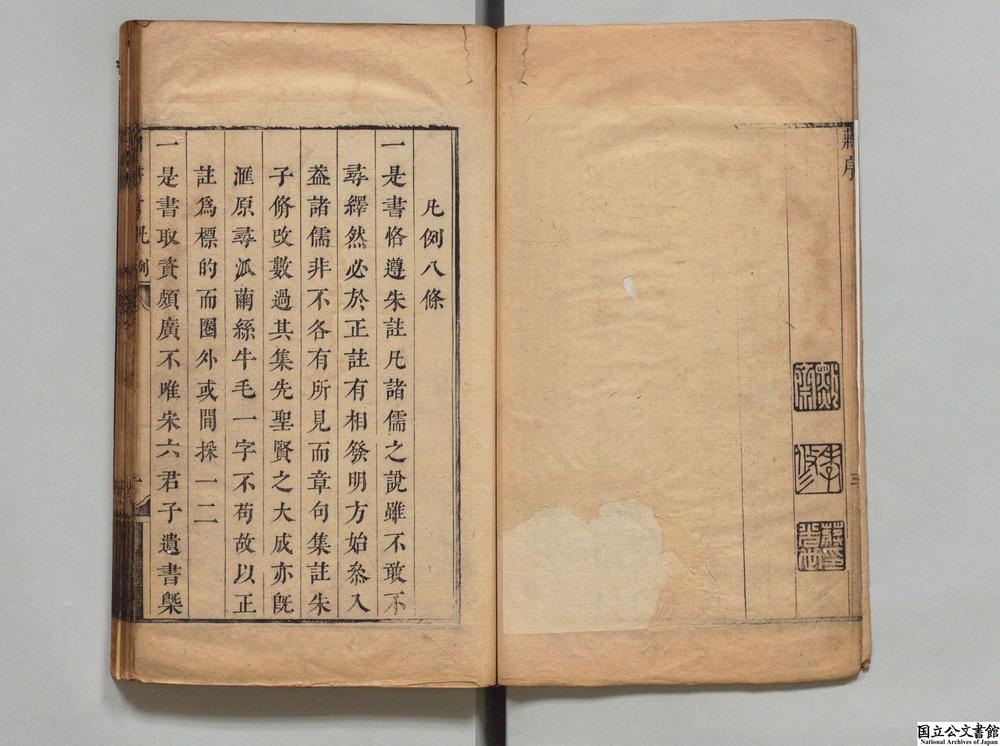 蔣序
凡例八條
一是書恪遵朱註凡諸儒之說雖不敢不
尋繹然必於正註有相發明方始叅入
葢諸儒非不各有所見而章句集註朱
子脩改數過其集先聖賢之大成亦旣
滙原尋派繭絲牛毛一字不苟故以正
註爲標的而圈外或間採一二
一是書取資頗廣不唯宋六君子遺書槩
凡例
国立公文書館
National Archives of Japan